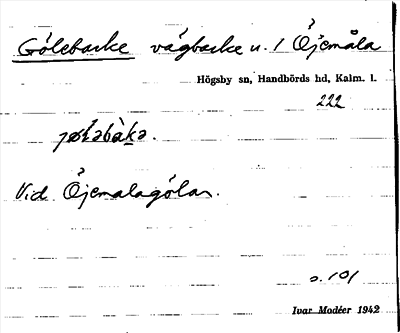 Gölebacke vägbacke u. 1 Öjemåla
Högsby sn, Handbörds hd, Kalm. l.
222
Vid Öjemalagölar.
s. 101
Ivar Modéer 1942